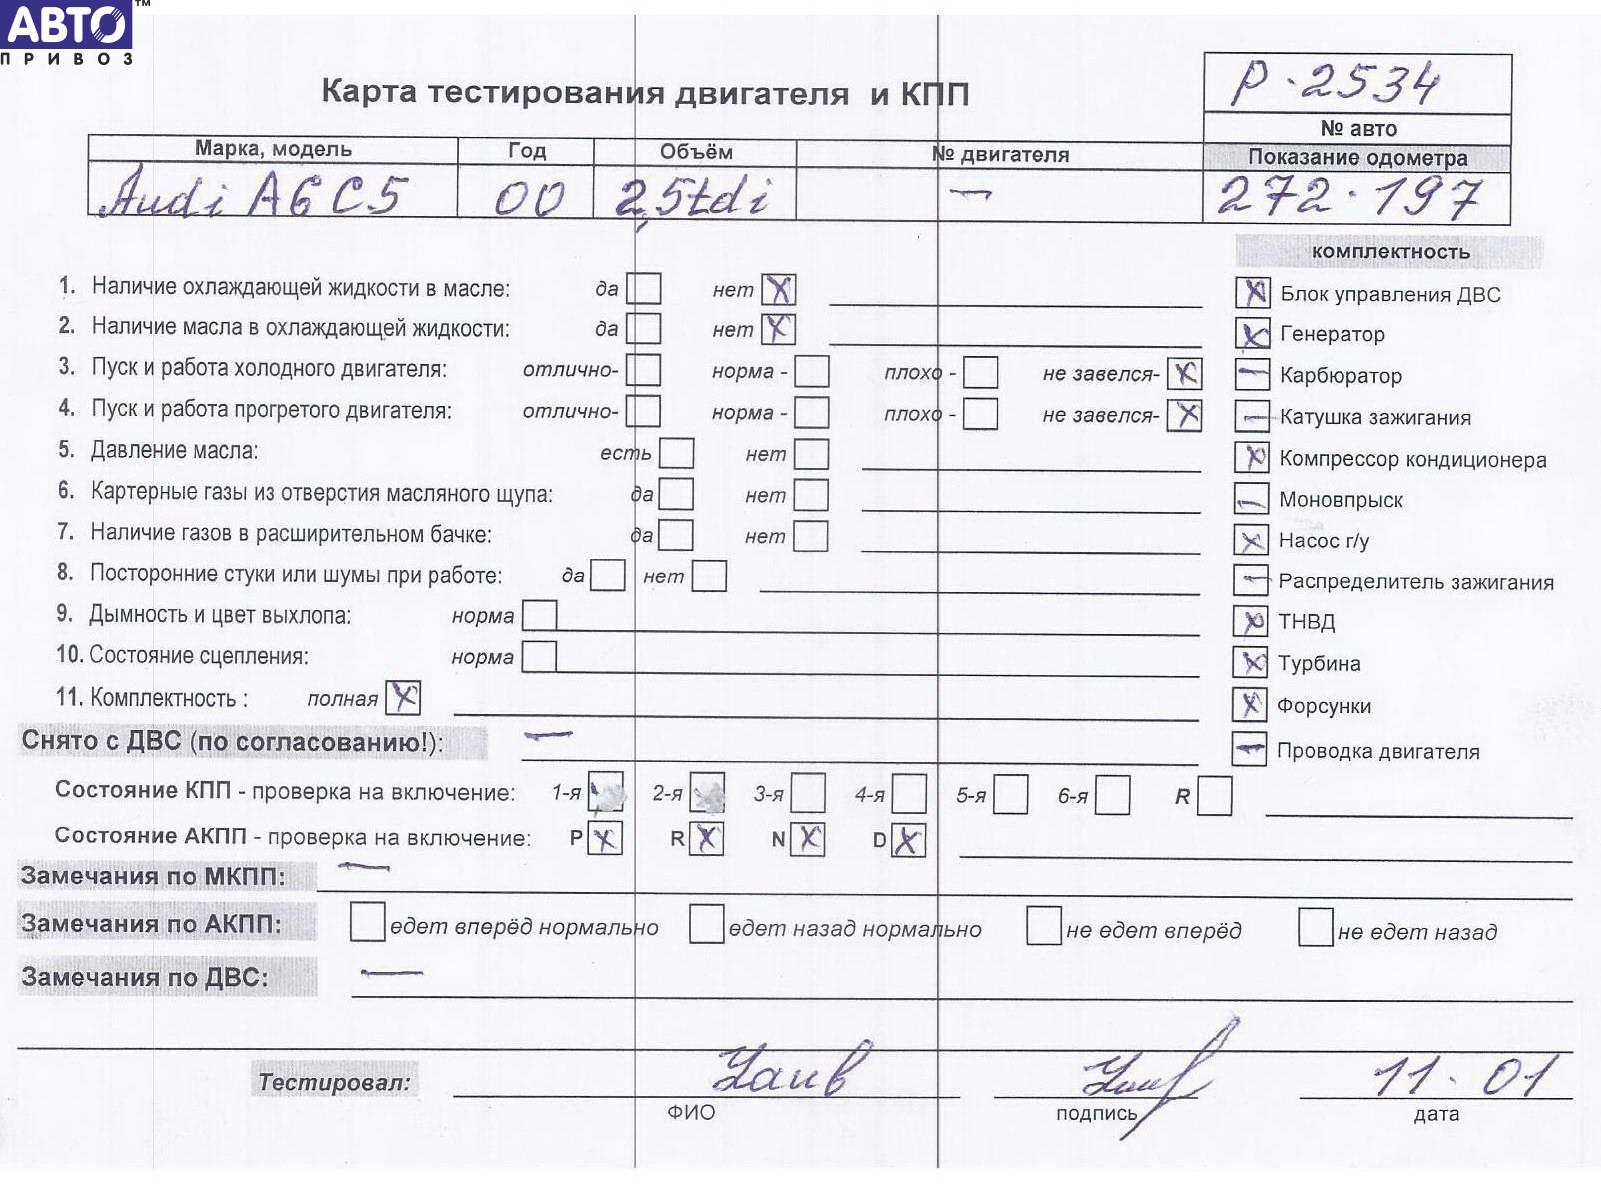 АВТО™
ПРИВОЗ
Карта тестирования двигателя и КПП
P-2534
№ авто
Марка, модель Год Объём № двигателя Показание одометра
Audi A6 C5 00 2,5tdi — 272·197
комплектность
1. Наличие охлаждающей жидкости в масле: да нет X
Блок управления ДВС X
2. Наличие масла в охлаждающей жидкости: да нет X
Генератор X
3. Пуск и работа холодного двигателя: отлично- норма - плохо - не завелся- X
Карбюратор —
4. Пуск и работа прогретого двигателя: отлично- норма - плохо - не завелся- X
Катушка зажигания —
5. Давление масла: есть нет
Компрессор кондиционера X
6. Картерные газы из отверстия масляного щупа: да нет
Моновпрыск —
7. Наличие газов в расширительном бачке: да нет
Насос г/у X
8. Посторонние стуки или шумы при работе: да нет
Распределитель зажигания —
9. Дымность и цвет выхлопа: норма
ТНВД X
10. Состояние сцепления: норма
Турбина X
11. Комплектность : полная X
Форсунки X
Снято с ДВС (по согласованию!): —
Проводка двигателя —
Состояние КПП - проверка на включение: 1-я 2-я 3-я 4-я 5-я 6-я R
Состояние АКПП - проверка на включение: P X R X N X D X
Замечания по МКПП: —
Замечания по АКПП: едет вперёд нормально едет назад нормально не едет вперёд не едет назад
Замечания по ДВС: —
Тестировал: 11.01
ФИО подпись дата